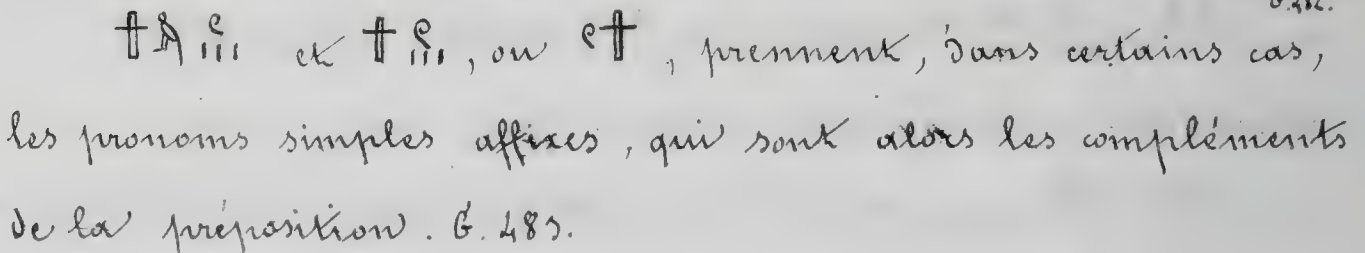 G. 482.
et , ou , prennent, dans certains cas,
les pronoms simples affixes, qui sont alors les compléments
de la préposition. G. 483.